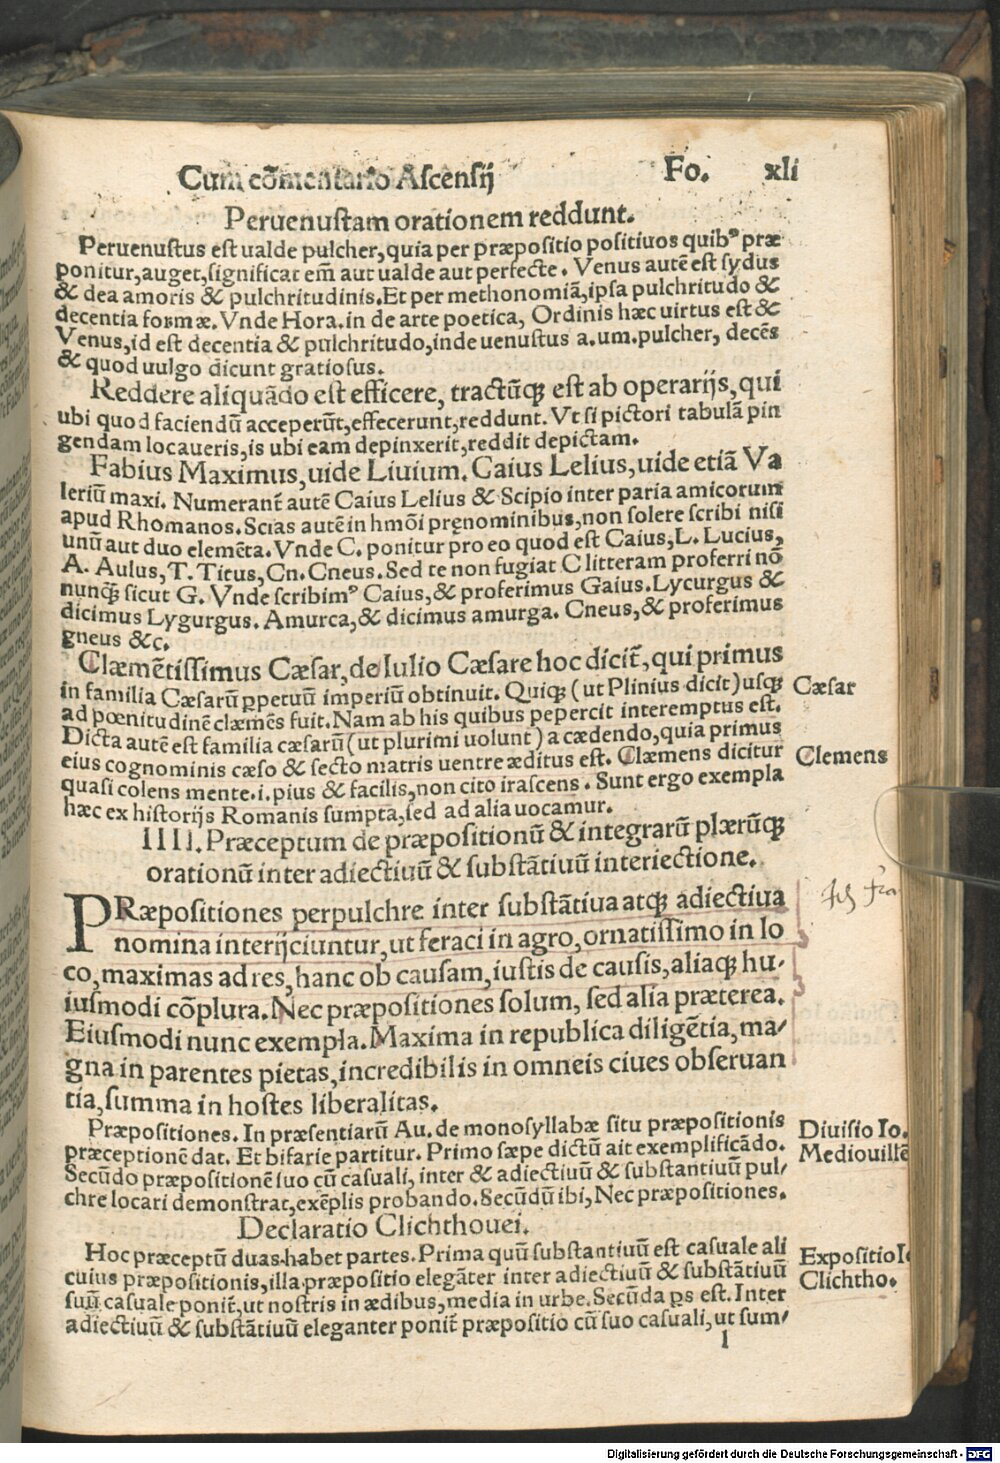 Cum cõmentario Ascensij Fo. xli
Peruenustam orationem reddunt.
Peruenustus est ualde pulcher, quia per præpositio positiuos quibꝰ præ
ponitur, auget, significat em̃ aut ualde aut perfecte. Venus autẽ est sydus
& dea amoris & pulchritudinis. Et per methonomiã, ipsa pulchritudo &
decentia formæ. Vnde Hora. in de arte poetica, Ordinis hæc uirtus est &
Venus, id est decentia & pulchritudo, inde uenustus a. um. pulcher, decẽs
& quod uulgo dicunt gratiosus.
Reddere aliquãdo est efficere, tractũqꝫ est ab operarijs, qui
ubi quod faciendũ acceperũt, effecerunt, reddunt. Vt si pictori tabulã pin
gendam locaueris, is ubi eam depinxerit, reddit depictam.
Fabius Maximus, uide Liuium. Caius Lelius, uide etiã Va
leriũ maxi. Numerant̃ autẽ Caius Lelius & Scipio inter paria amicorum
apud Rhomanos. Scias autẽ in hmõi pręnominibus, non solere scribi nisi
unũ aut duo elemẽta. Vnde C. ponitur pro eo quod est Caius, L. Lucius,
A. Aulus, T. Titus, Cn. Cneus. Sed te non fugiat C litteram proferri nõ
nunqꝫ̃ sicut G. Vnde scribimꝰ Caius, & proferimus Gaius. Lycurgus &
dicimus Lygurgus. Amurca, & dicimus amurga. Cneus, & proferimus
gneus &c.
Clæmẽtissimus Cæsar, de Iulio Cæsare hoc dicit̃, qui primus
in familia Cæsarũ ꝑpetuũ imperiũ obtinuit. Quiqꝫ (ut Plinius dicit) usqꝫ
Cæsar
ad pœnitudinẽ clæmẽs fuit. Nam ab his quibus pepercit interemptus est.
Dicta autẽ est familia cæsarũ (ut plurimi uolunt) a cædendo, quia primus
eius cognominis cæso & secto matris uentre æditus est. Clæmens dicitur
Clemens
quasi colens mente. i. pius & facilis, non cito irascens. Sunt ergo exempla
hæc ex historijs Romanis sumpta, sed ad alia uocamur.
IIII. Præceptum de præpositionũ & integrarũ plærũqꝫ
orationũ inter adiectiuũ & substãtiuũ interiectione.
PRæpositiones perpulchre inter substãtiua atqꝫ adiectiua
nomina interijciuntur, ut feraci in agro, ornatissimo in lo
co, maximas ad res, hanc ob causam, iustis de causis, aliaqꝫ hu⸗
iusmodi cõplura. Nec præpositiones solum, sed alia præterea.
Eiusmodi nunc exempla. Maxima in republica diligẽtia, ma⸗
gna in parentes pietas, incredibilis in omneis ciues obseruan
tia, summa in hostes liberalitas.
Præpositiones. In præsentiarũ Au. de monosyllabæ situ præpositionis
Diuisio Io.
præceptionẽ dat. Et bifarie partitur. Primo sæpe dictũ ait exemplificãdo.
Mediouillẽ
Secũdo præpositionẽ suo cũ casuali, inter & adiectiuũ & substantiuũ pul⸗
chre locari demonstrat, exẽplis probando. Secũdũ ibi, Nec præpositiones.
Declaratio Clichthouei.
Hoc præceptũ duas habet partes. Prima quũ substantiuũ est casuale ali
Expositio Io
cuius præpositionis, illa præpositio elegãter inter adiectiuũ & substãtiuũ
Clichtho.
suũ casuale ponit̃, ut nostris in ædibus, media in urbe. Secũda ꝑs est. Inter
adiectiuũ & substãtiuũ eleganter ponit̃ præpositio cũ suo casuali, ut sum⸗
l
Digitalisierung gefördert durch die Deutsche Forschungsgemeinschaft - DFG